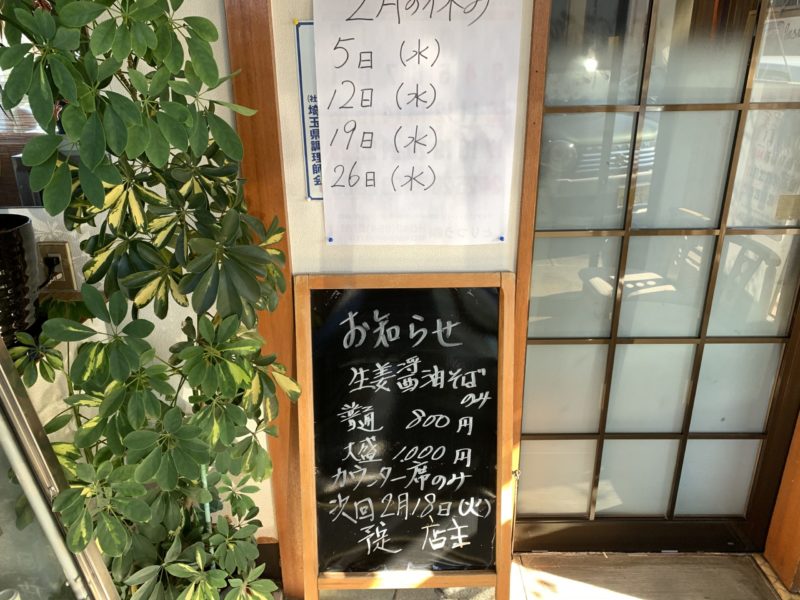 2月の休み
5日（水）
12日（水）
19日（水）
26日（水）
(社)埼玉県調理師会
お知らせ
生姜醤油そば
のみ
普通 800円
大盛 1.000円
カウンター席のみ
次回2月18日(火)
予定 店主